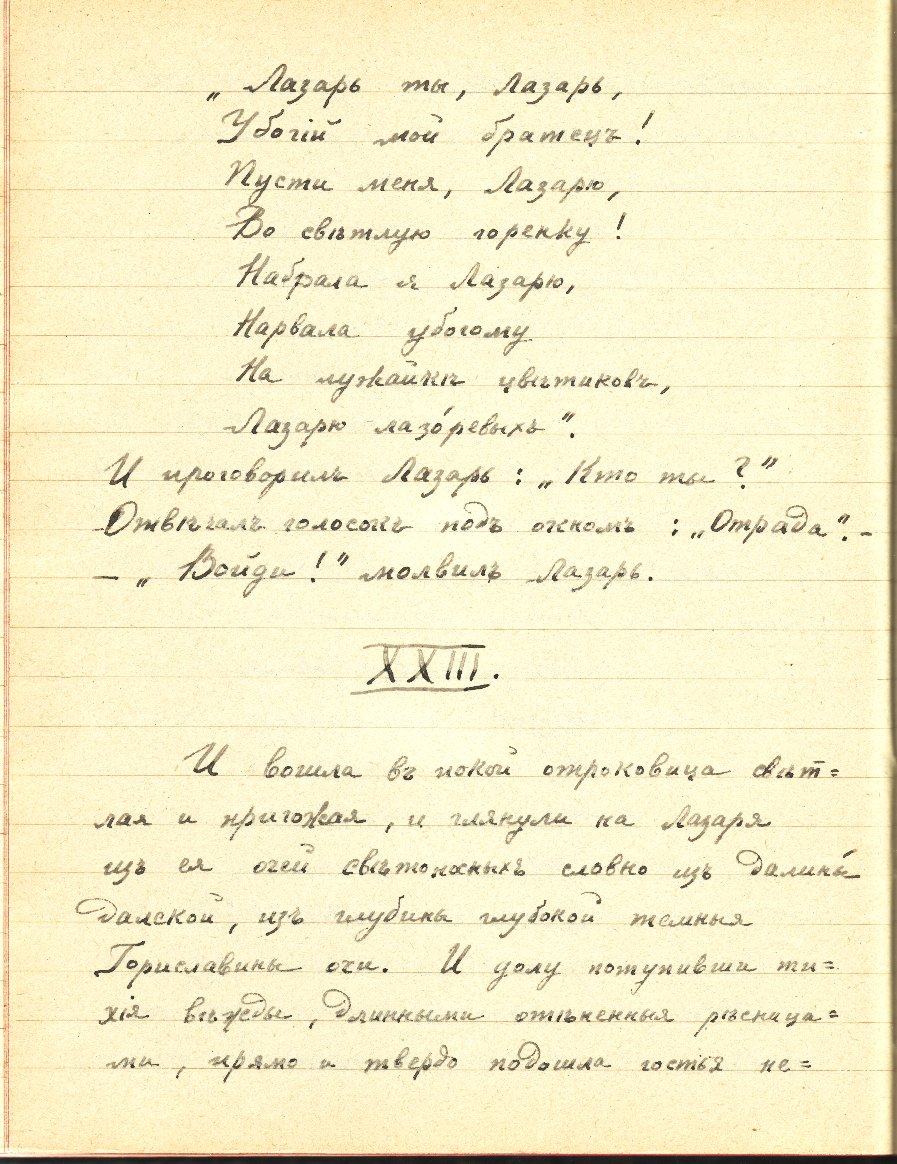 „Лазарь ты, Лазарь,
Убогій мой братецъ!
Пусти меня, Лазарю,
Во свѣтлую горенку!
Набрала я Лазарю,
Нарвала убогому
На лужайкѣ цвѣтиковъ,
Лазарю лазо́ревыхъ“.
И проговорилъ Лазарь: „Кто ты?“
Отвѣчалъ голосокъ подъ окномъ: „Отрада“. –
– „Войди!“ молвилъ Лазарь.
XXIII.
И вошла въ покой отроковица свѣт=
лая и пригожая, и глянули на Лазаря
изъ ея очей свѣтоносныхъ словно изъ далины́
далской, изъ глубины глубокой темныя
Гориславины очи. И долу потупивши ти=
хія вѣжды, длинными отѣненныя рѣсница=
ми, прямо и твердо подошла гостья не=